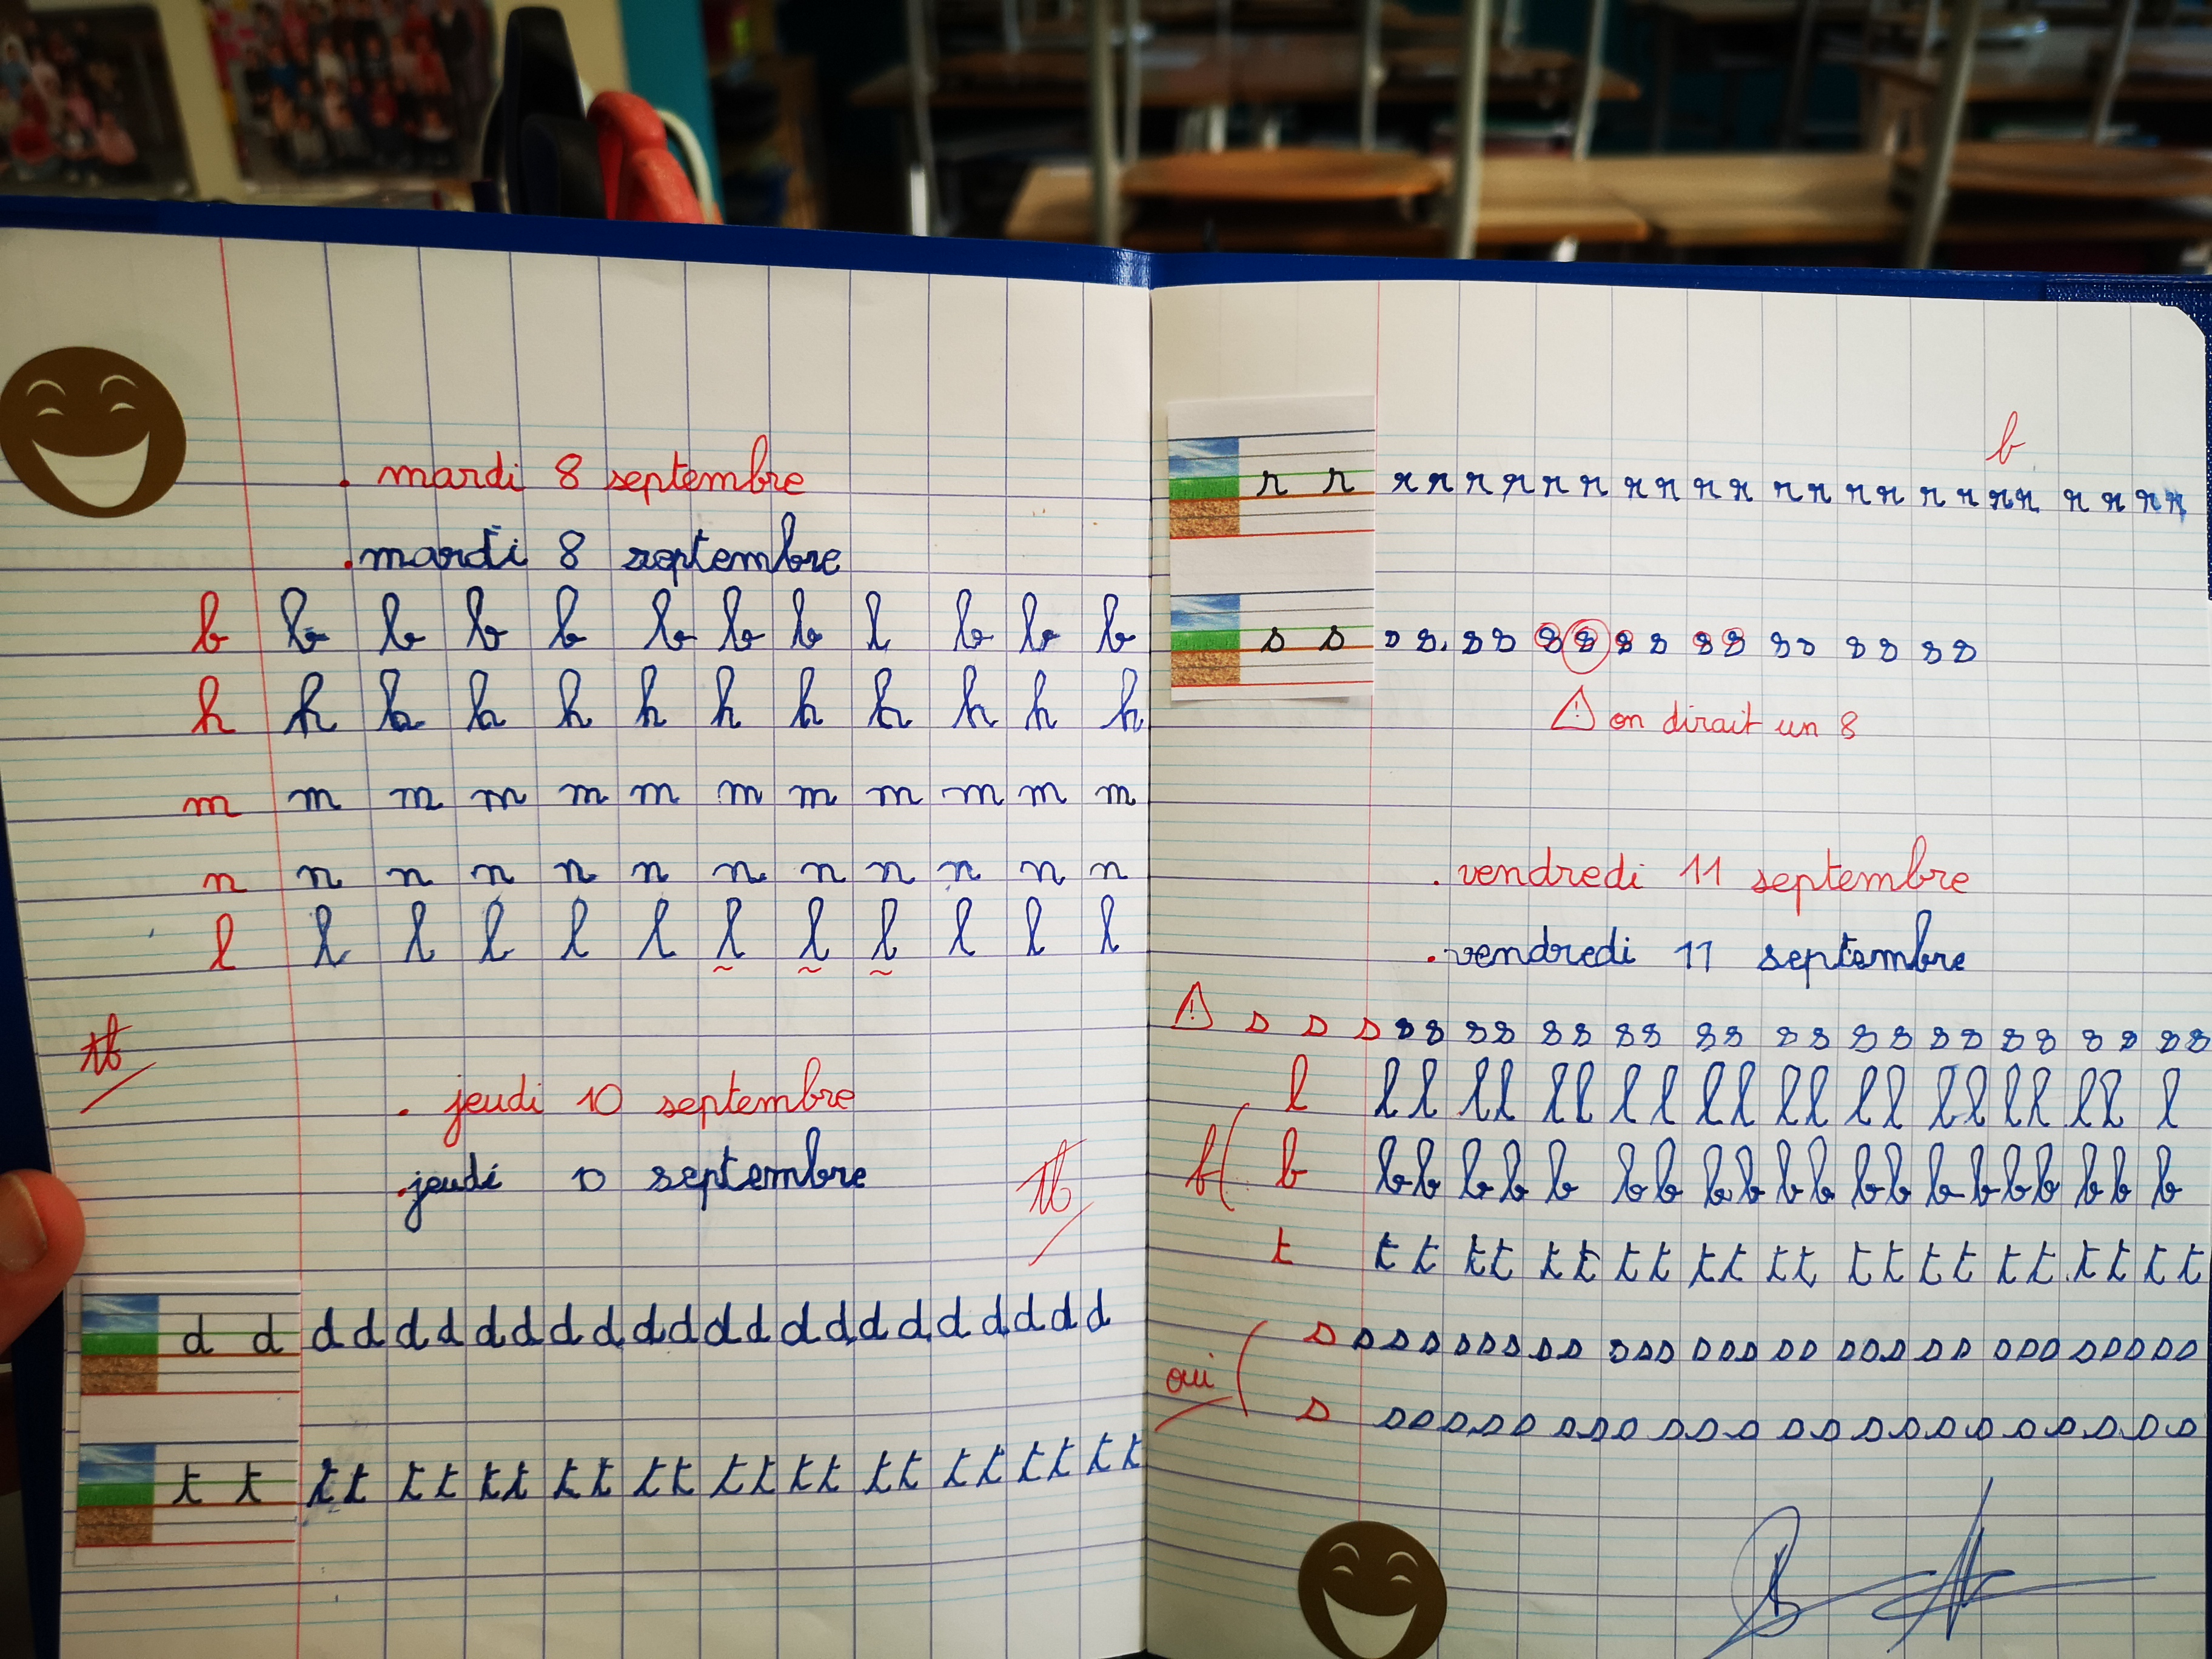 . mardi 8 septembre
. mardi 8 septembre
b b b b b b b b l b b b
h h h h h h h h h h h h
m m m m m m m m m m m m
n n n n n n n n n n n n
l l l l l l l l l l l l
tb
. jeudi 10 septembre
. jeudi 10 septembre
tb
d d d d d d d d d d d d d d d d d d d d d d
t t t t t t t t t t t t t t t t t t t t t t t t
b
r r r r r r r r r r r r r r r r r r r r r r r r
s s s s s s s s s s s s s s s s s s
⚠ on dirait un 8
. vendredi 11 septembre
. vendredi 11 septembre
⚠ s s s s s s s s s s s s s s s s s s s s s s s s s
l l l l l l l l l l l l l l l l l l l l l l
b b b b b b b b b b b b b b b b b b b b b b
t t t t t t t t t t t t t t t t t t t t t t t
s s s s s s s s s s s s s s s s s s s s s s s s s s s s s
oui
s s s s s s s s s s s s s s s s s s s s s s s s s